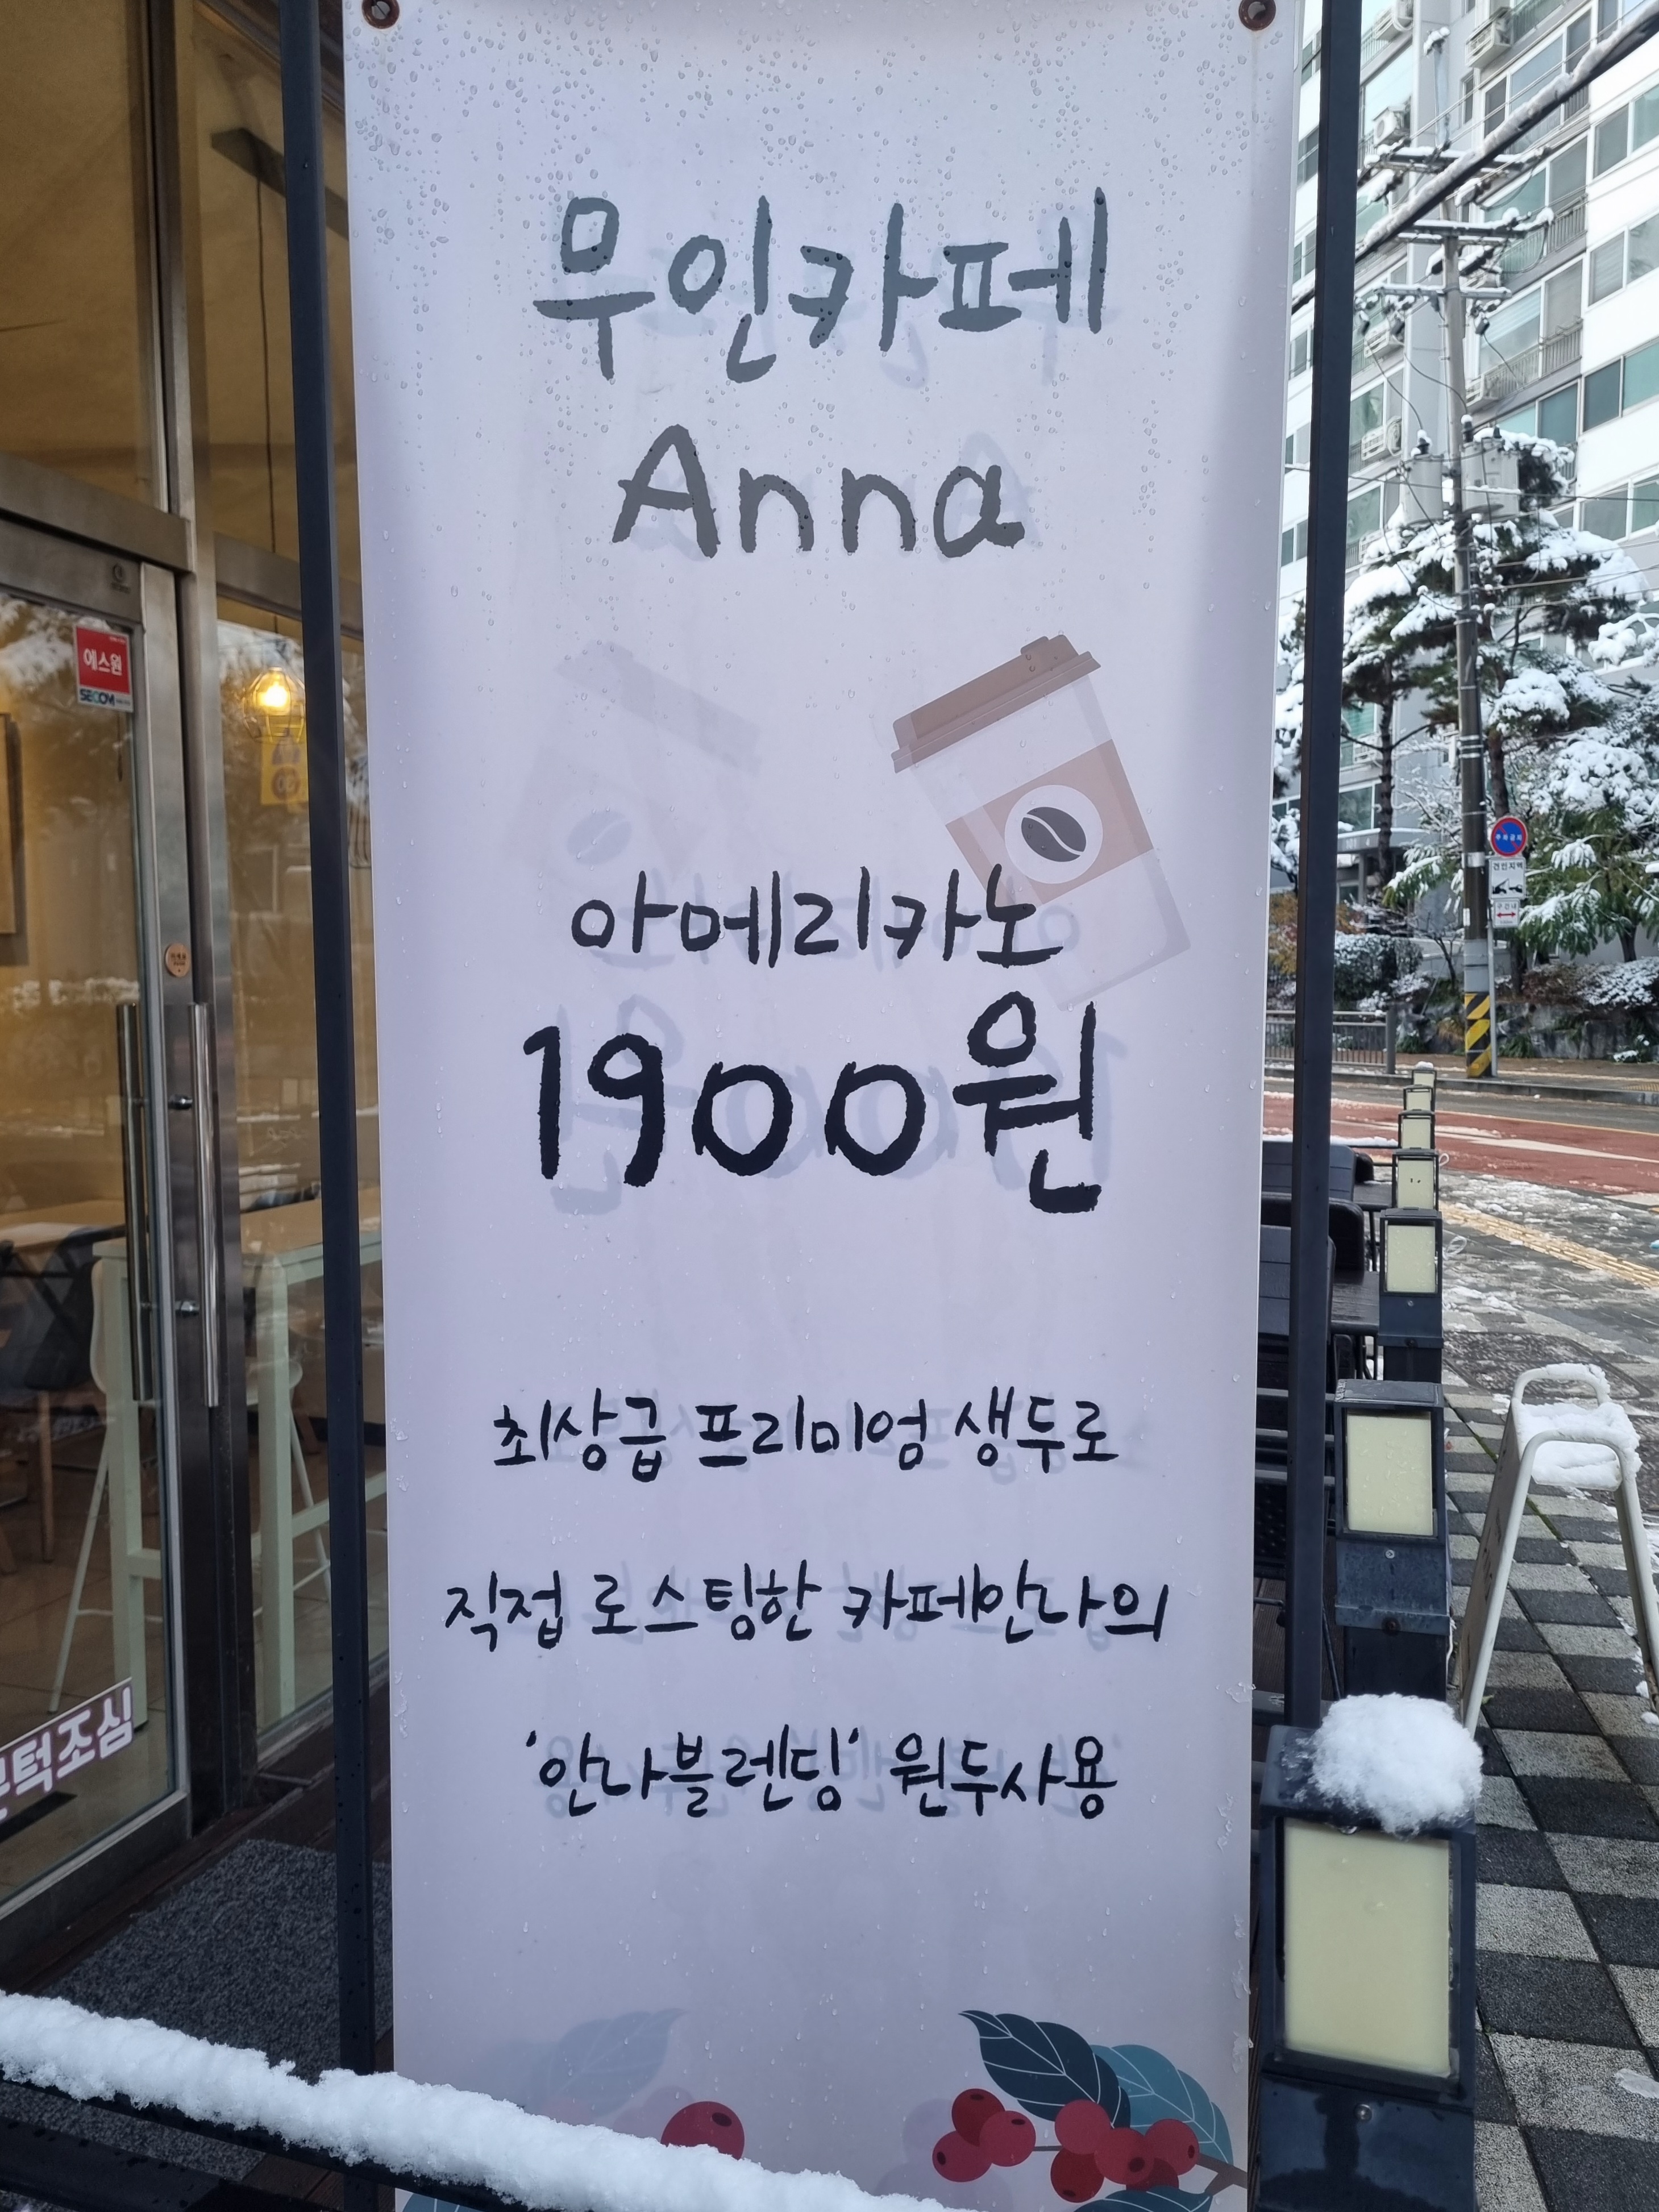 무인카페
Anna
아메리카노
1900원
최상급 프리미엄 생두로
직접 로스팅한 카페안나의
'안나블렌딩' 원두사용
에스원
SECOM
턱조심
견인지역